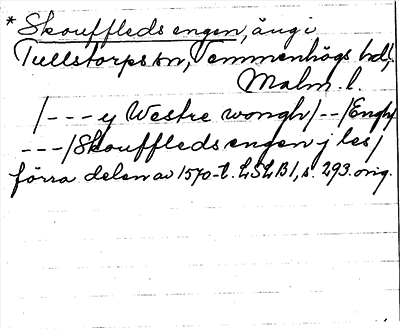 * Skouffleds engen, äng i
Tullstorps sn, Vemmenhögs hd,
Malm. l.
/--- y Westre wongh/--/Engh/
---/Skouffledsengen j les/
förra delen av 1570-t. LSLB1, s. 293. orig.